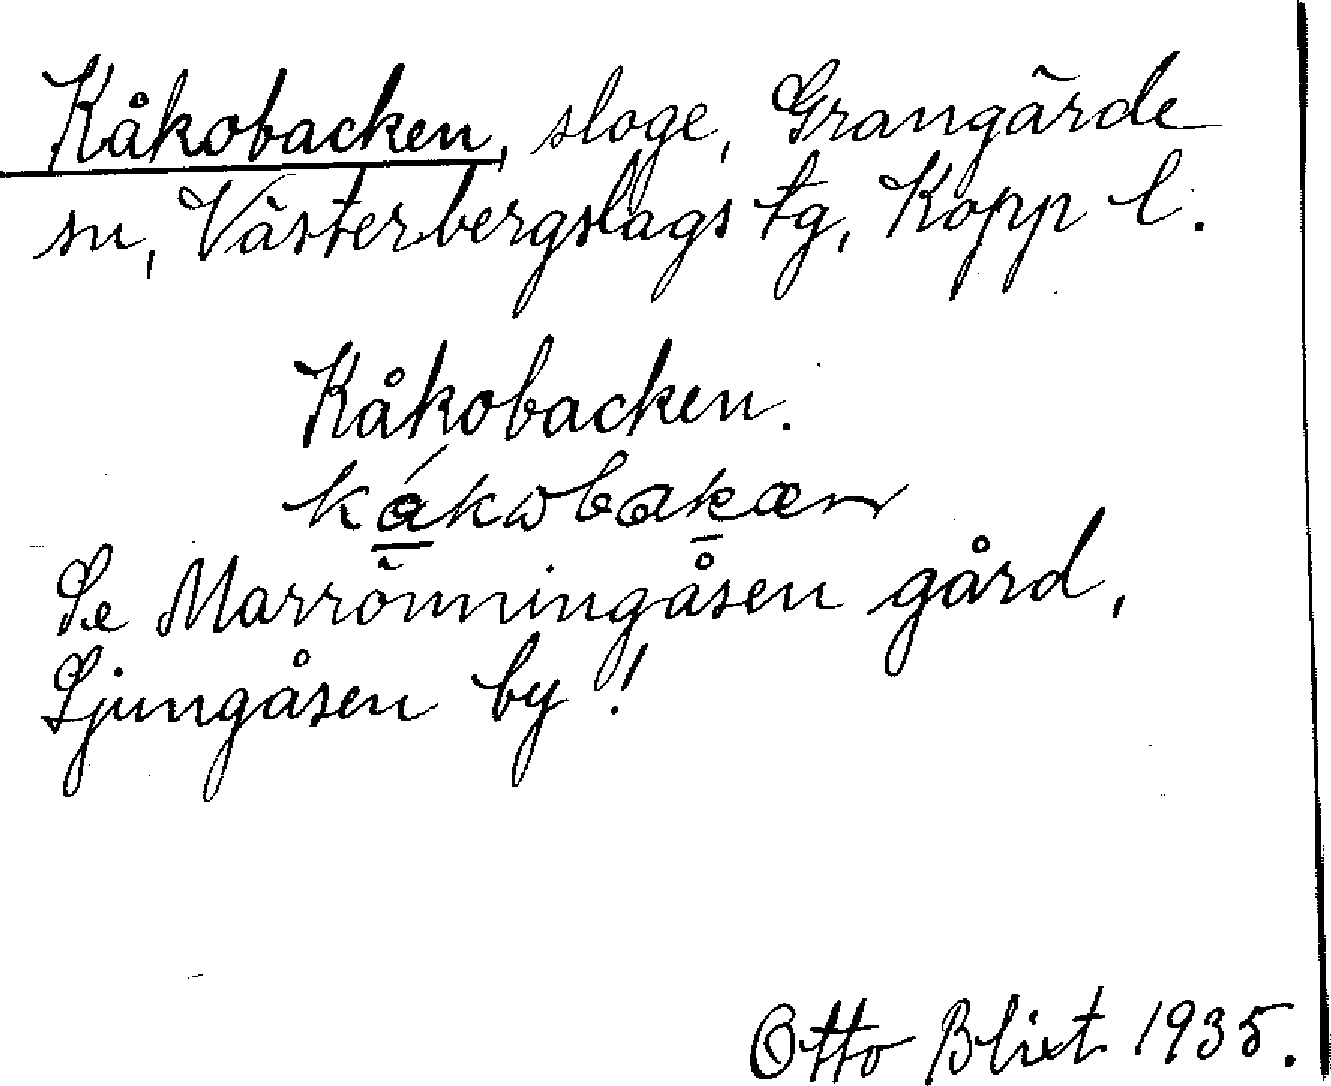 Kåkobacken, sloge, Grangärde
sn, Västerbergslags tg, Kopp l.
Kåkobacken.
kákωbakæn
Se Marrönningåsen gård,
Ljungåsen by!
Otto Blixt 1935.